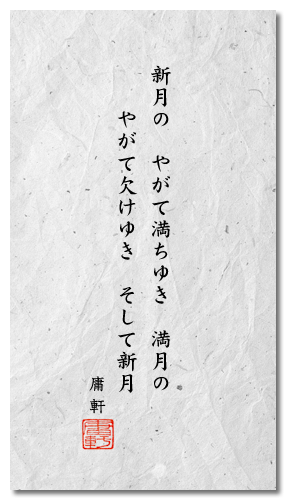 新月の　やがて満ちゆき　満月の
やがて欠けゆき　そして新月
庸軒